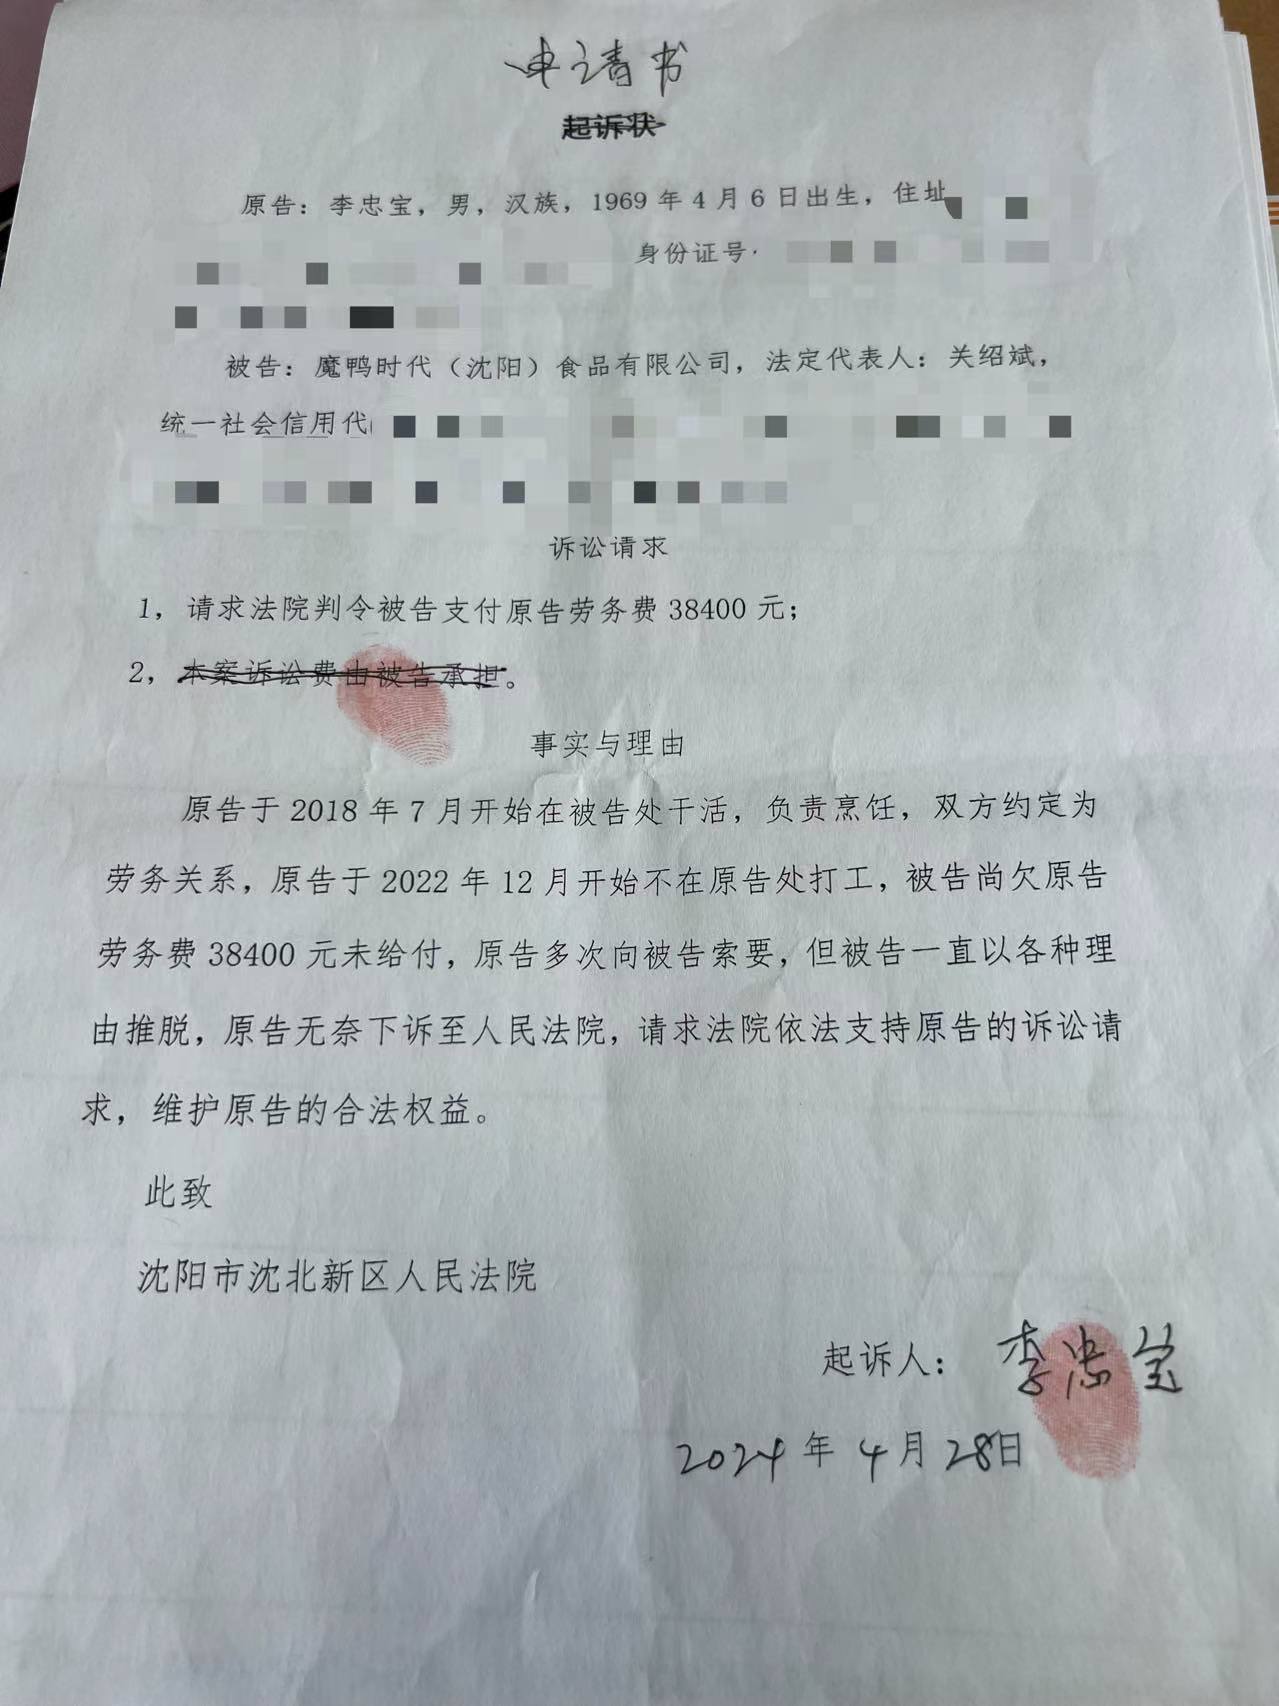 申请书
起诉状
原告：李忠宝，男，汉族，1969年4月6日出生，住址
身份证号
被告：魔鸭时代（沈阳）食品有限公司，法定代表人：关绍斌，
统一社会信用代
诉讼请求
1，请求法院判令被告支付原告劳务费38400元；
2，本案诉讼费由被告承担。
事实与理由
原告于2018年7月开始在被告处干活，负责烹饪，双方约定为
劳务关系，原告于2022年12月开始不在原告处打工，被告尚欠原告
劳务费38400元未给付，原告多次向被告索要，但被告一直以各种理
由推脱，原告无奈下诉至人民法院，请求法院依法支持原告的诉讼请
求，维护原告的合法权益。
此致
沈阳市沈北新区人民法院
起诉人：李忠宝
2024年4月28日